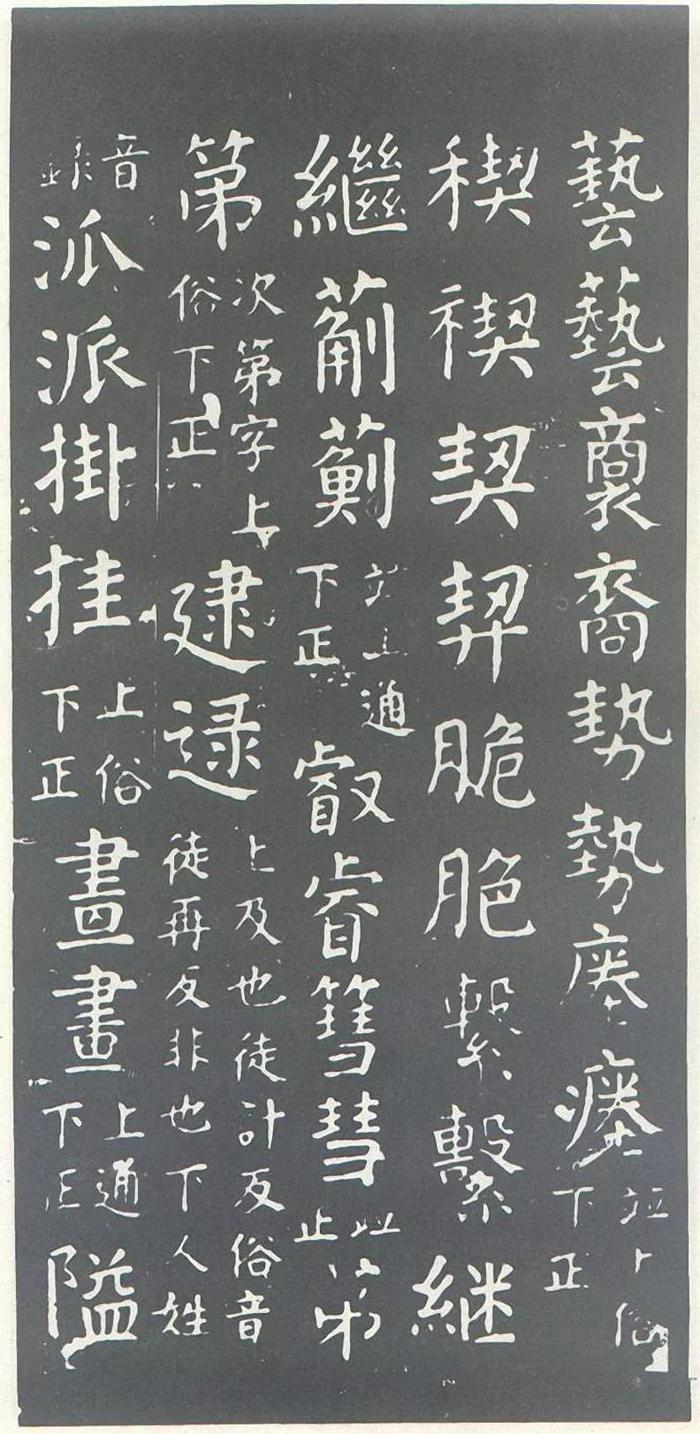 藝藝裔裔勢勢瘞瘞並上俗下正
稧禊契契脆脃繫繫継
繼葪薊並上通下正叡睿篲彗並正弟
第次第字上俗下正逮逯上及也徒計反俗音徒再反非也下人姓
音錄派派掛挂上俗下正畫畫上通下正隘